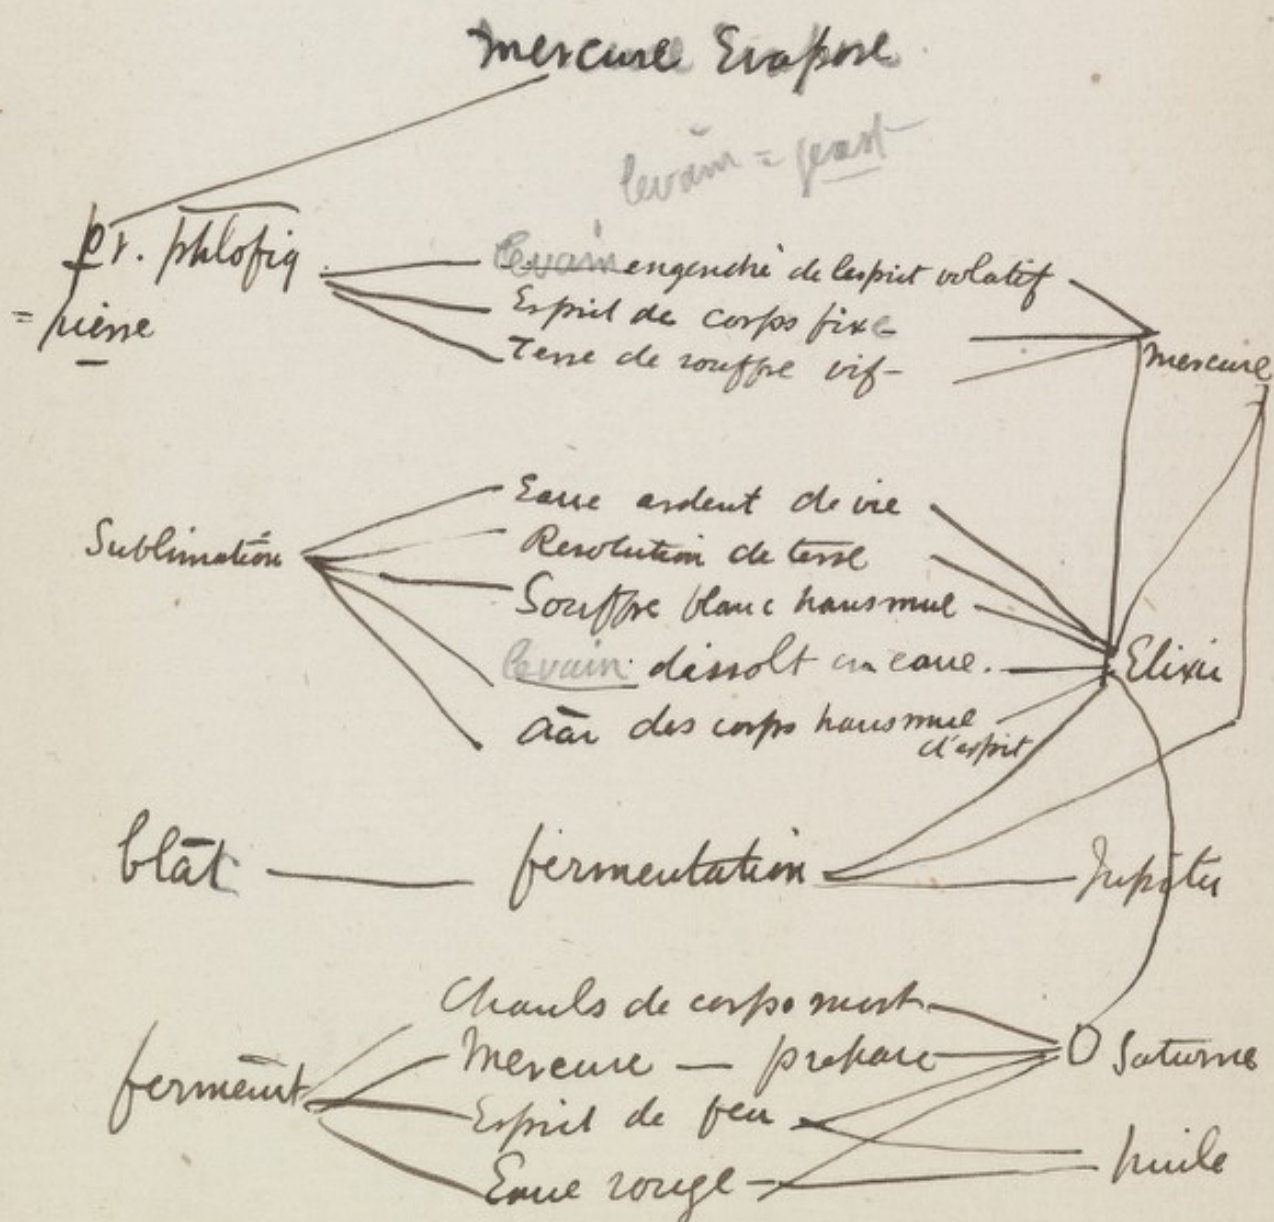 mercure Evapore
levain = yeast
pr. phlofiq
= pierre
levain engendré de lesprit volatif
Esprit de corps fixe
Terre de souffre vif
mercure
Sublimatiōn
Eaue ardent de vie
Resolution de terre
Souffre blanc hausmue
levain dissolt en eaue.
Elixir
āār des corps hausmue
d'esprit
blāt
fermentation
Jupiter
Chauls de corps mort
ferment
Mercure — prepare
O Saturne
Esprit de feu
huile
Eaue rouge